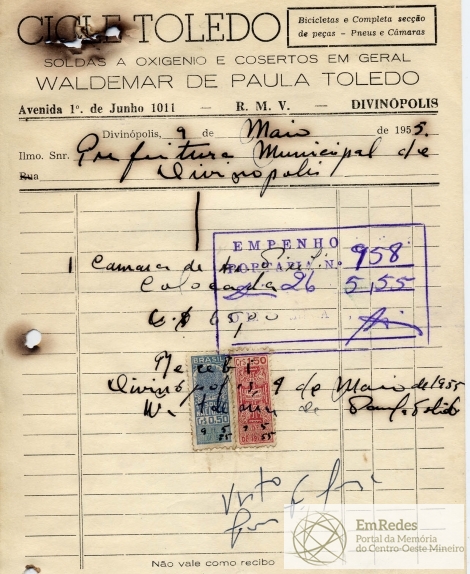 CICLE TOLEDO
Bicicletas e Completa secção
de peças - Pneus e Câmaras
SOLDAS A OXIGENIO E COSERTOS EM GERAL
WALDEMAR DE PAULA TOLEDO
Avenida 1º. de Junho 1011 — R. M. V. — DIVINÓPOLIS
Divinópolis, 9 de Maio de 1955.
Ilmo. Snr. Prefeitura Municipal de
Rua Divinopolis
EMPENHO
PORTARIA N. 958
1 Camara de
Colocada 26 5 55
Recebi
Divinopolis, 9 de Maio de 1955
Waldemar de Paula Toledo
BRASIL
CR$0,50
1,50
9 5 55
9 5 55
Visto
EmRedes
Portal da Memória
do Centro-Oeste Mineiro
Não vale como recibo